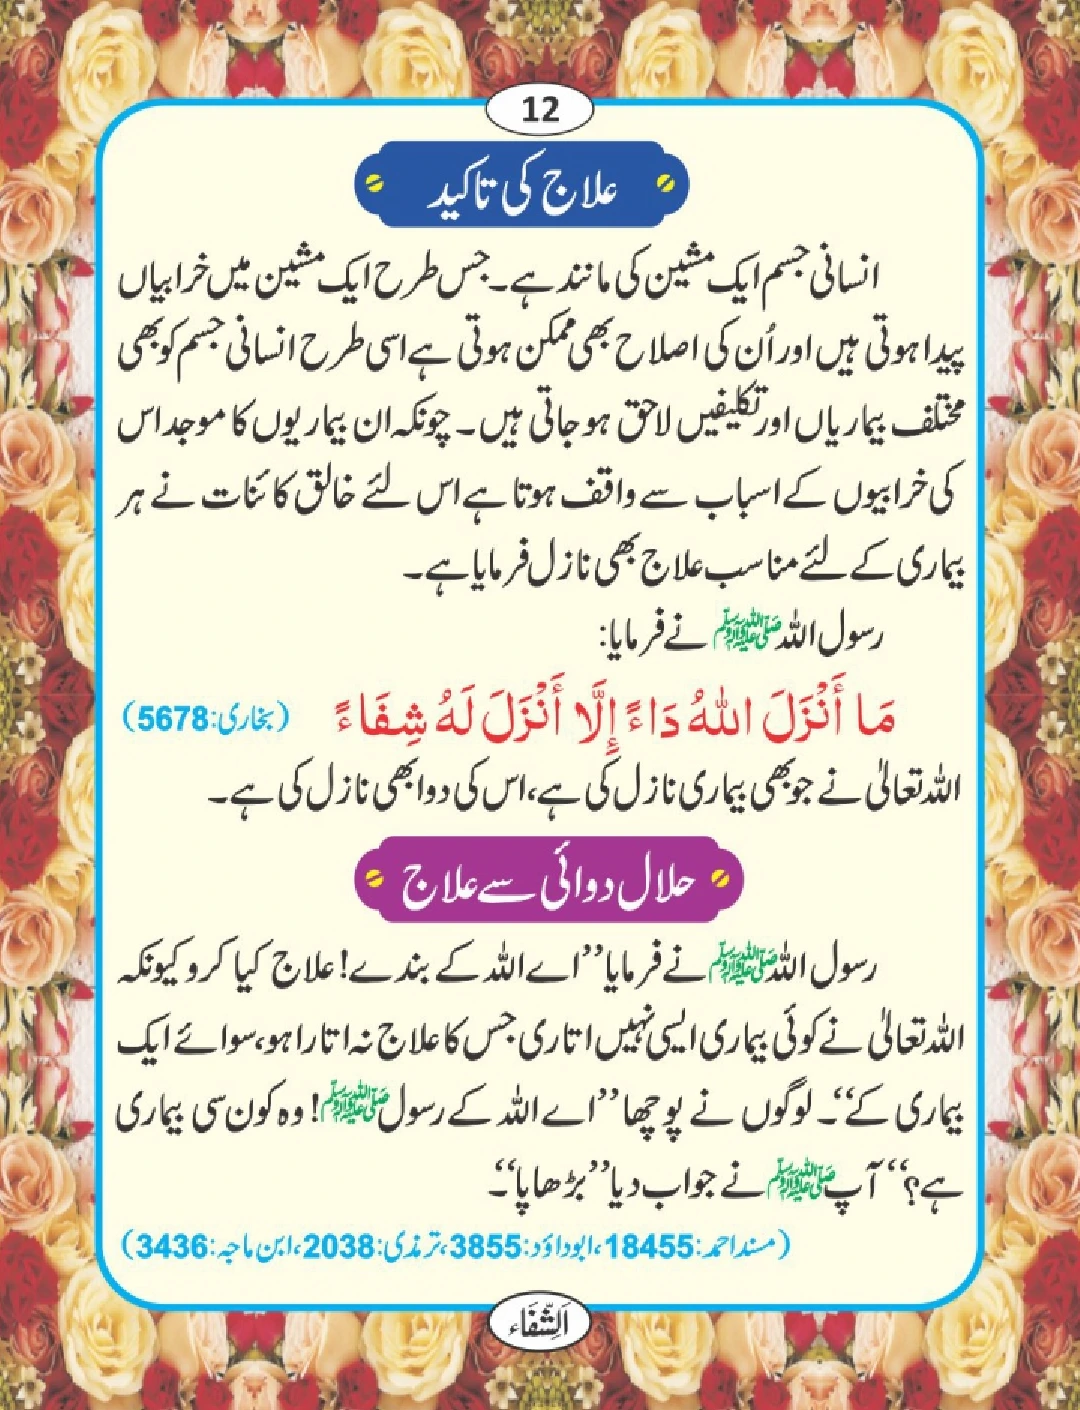 12
علاج کی تاکید
انسانی جسم ایک مشین کی مانند ہے۔ جس طرح ایک مشین میں خرابیاں
پیدا ہوتی ہیں اور اُن کی اصلاح بھی ممکن ہوتی ہے اسی طرح انسانی جسم کو بھی
مختلف بیماریاں اور تکلیفیں لاحق ہو جاتی ہیں۔ چونکہ ان بیماریوں کا موجد اس
کی خرابیوں کے اسباب سے واقف ہوتا ہے اس لئے خالق کائنات نے ہر
بیماری کے لئے مناسب علاج بھی نازل فرمایا ہے۔
رسول اللہ ﷺ نے فرمایا:
مَا أَنْزَلَ اللهُ دَاءً إِلَّا أَنْزَلَ لَهُ شِفَاءً (بخاری:5678)
اللہ تعالیٰ نے جو بھی بیماری نازل کی ہے، اس کی دوا بھی نازل کی ہے۔
حلال دوائی سے علاج
رسول اللہ ﷺ نے فرمایا ”اے اللہ کے بندے! علاج کیا کرو کیونکہ
اللہ تعالیٰ نے کوئی بیماری ایسی نہیں اتاری جس کا علاج نہ اتارا ہو، سوائے ایک
بیماری کے“۔ لوگوں نے پوچھا ”اے اللہ کے رسول ﷺ! وہ کون سی بیماری
ہے؟“ آپ ﷺ نے جواب دیا ”بڑھاپا“۔
(مسند احمد:18455، ابوداؤد:3855، ترمذی:2038، ابن ماجہ:3436)
اَلشِّفَاء